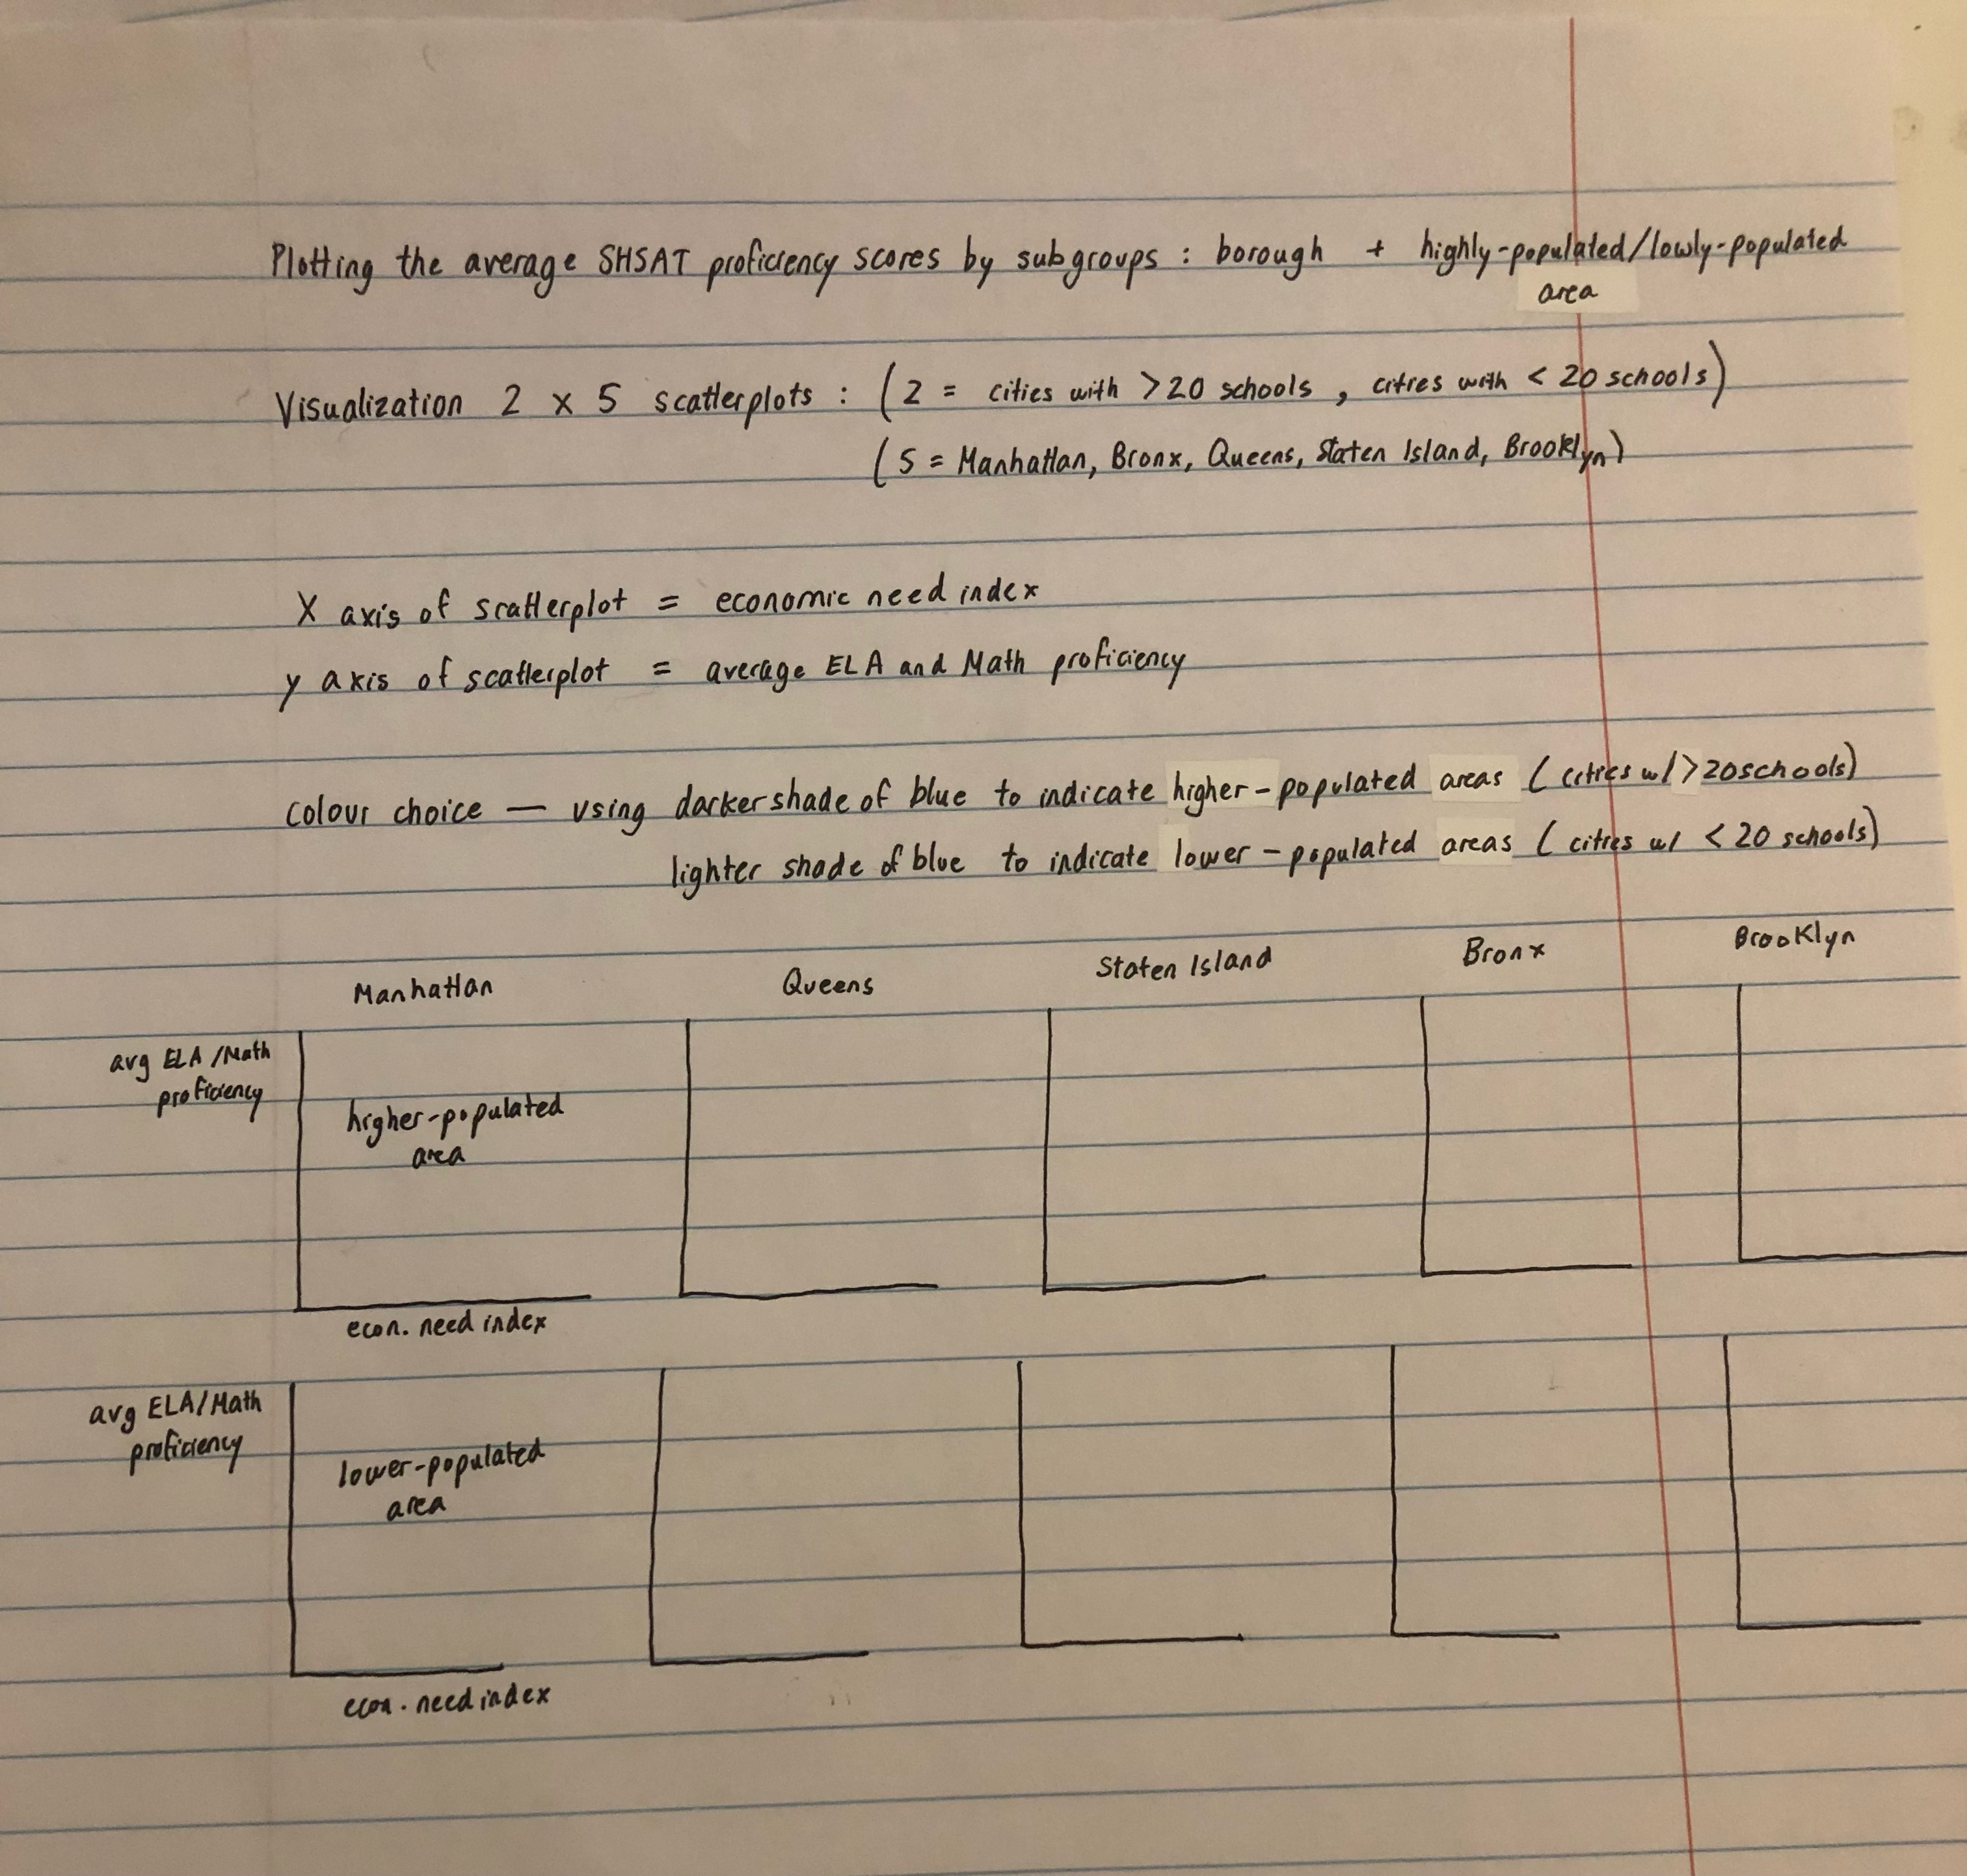 Plotting the average SHSAT proficiency scores by subgroups : borough + highly-populated/lowly-populated
area
Visualization 2 x 5 scatterplots : (2 = cities with >20 schools , cities with < 20 schools)
(5 = Manhattan, Bronx, Queens, Staten Island, Brooklyn)
X axis of scatterplot = economic need index
y axis of scatterplot = average ELA and Math proficiency
colour choice — using darker shade of blue to indicate higher-populated areas (cities w/ >20 schools)
lighter shade of blue to indicate lower-populated areas (cities w/ < 20 schools)
Manhattan Queens Staten Island Bronx Brooklyn
avg ELA/Math
proficiency
higher-populated
area
econ. need index
avg ELA/Math
proficiency
lower-populated
area
econ. need index